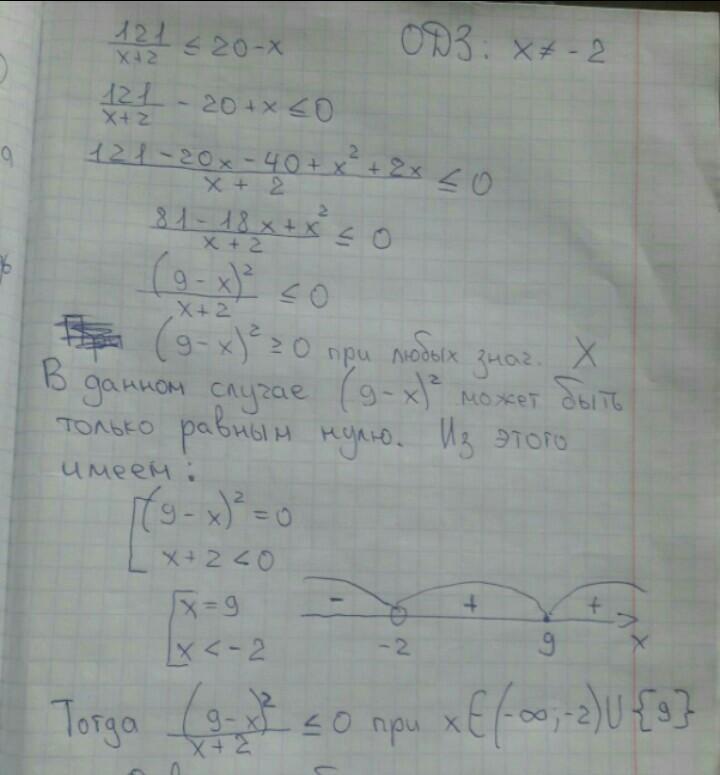 121/(x+2) ≤ 20-x ОДЗ: x ≠ -2
121/(x+2) - 20+x ≤ 0
(121-20x-40+x²+2x)/(x+2) ≤ 0
(81-18x+x²)/(x+2) ≤ 0
(9-x)²/(x+2) ≤ 0
(9-x)² ≥ 0 при любых знаг. X
В данном случае (9-x)² может быть
только равным нулю. Из этого
имеем:
[(9-x)² = 0
x+2 < 0
[x = 9
x < -2
- + +
-2 9 x
Тогда (9-x)²/(x+2) ≤ 0 при x∈(-∞;-2)∪{9}